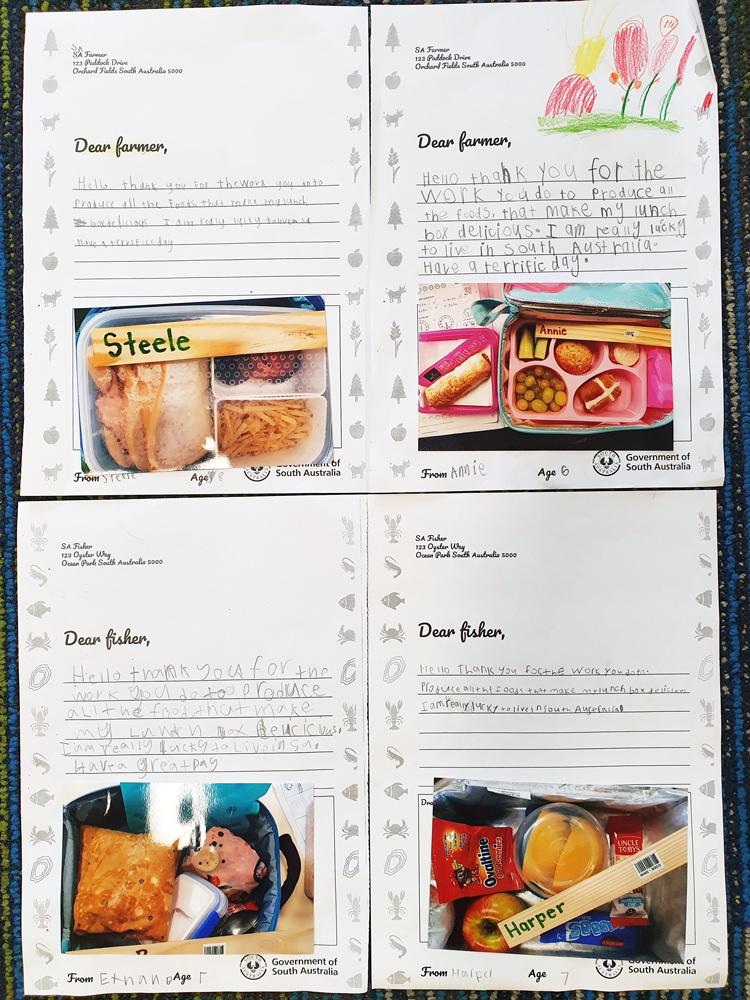 SA Farmer
123 Paddock Drive
Orchard Fields South Australia 5000
Dear farmer,
Hello thank you for the work you do to
produce all the foods that make my lunch
box delicious I am really lucky to live in sa
Have a terrific day
Steele
From Steele Age 8
Government of
South Australia
SA Farmer
123 Paddock Drive
Orchard Fields South Australia 5000
Dear farmer,
Hello thank you for the
work you do to produce all
the foods, that make my lunch
box delicious. I am really lucky
to live in South Australia.
Have a terrific day.
Annie
From Annie Age 6
Government of
South Australia
SA Fisher
123 Oyster Way
Ocean Park South Australia 5000
Dear fisher,
Hello thank you for the
work you do to produce
all the food that make
my Lunch box delicious.
I am really lucky to Live in sa.
Have a great Day
From Ethan Age
Government of
South Australia
SA Fisher
123 Oyster Way
Ocean Park South Australia 5000
Dear fisher,
Hello Thank you for the work you do to.
Produce all the foods that make my lunch box delicious
I am really lucky to live in South Australia
Ovaltine
UNCLE
TOBYS
Harper
From Harper Age 7
Government of
South Australia